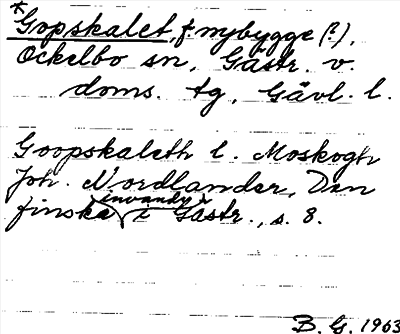 *Gopskalet, f. nybygge (?),
Ockelbo sn, Gästr. v.
doms. tg, Gävl. l.
Goopskaleth l. Moskogh
Joh. Nordlander, Den
finska invandr. i Gästr., s. 8.
B. G. 1963